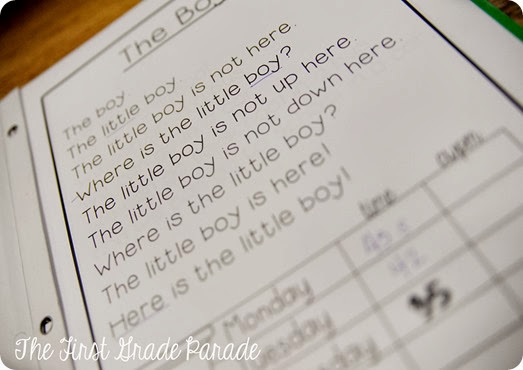 The Boy
The boy
The little boy.
The little boy is not here.
Where is the little boy?
The little boy is not up here.
The little boy is not down here.
Where is the little boy?
The little boy is here!
Here is the little boy!
time
Monday
42
The First Grade Parade